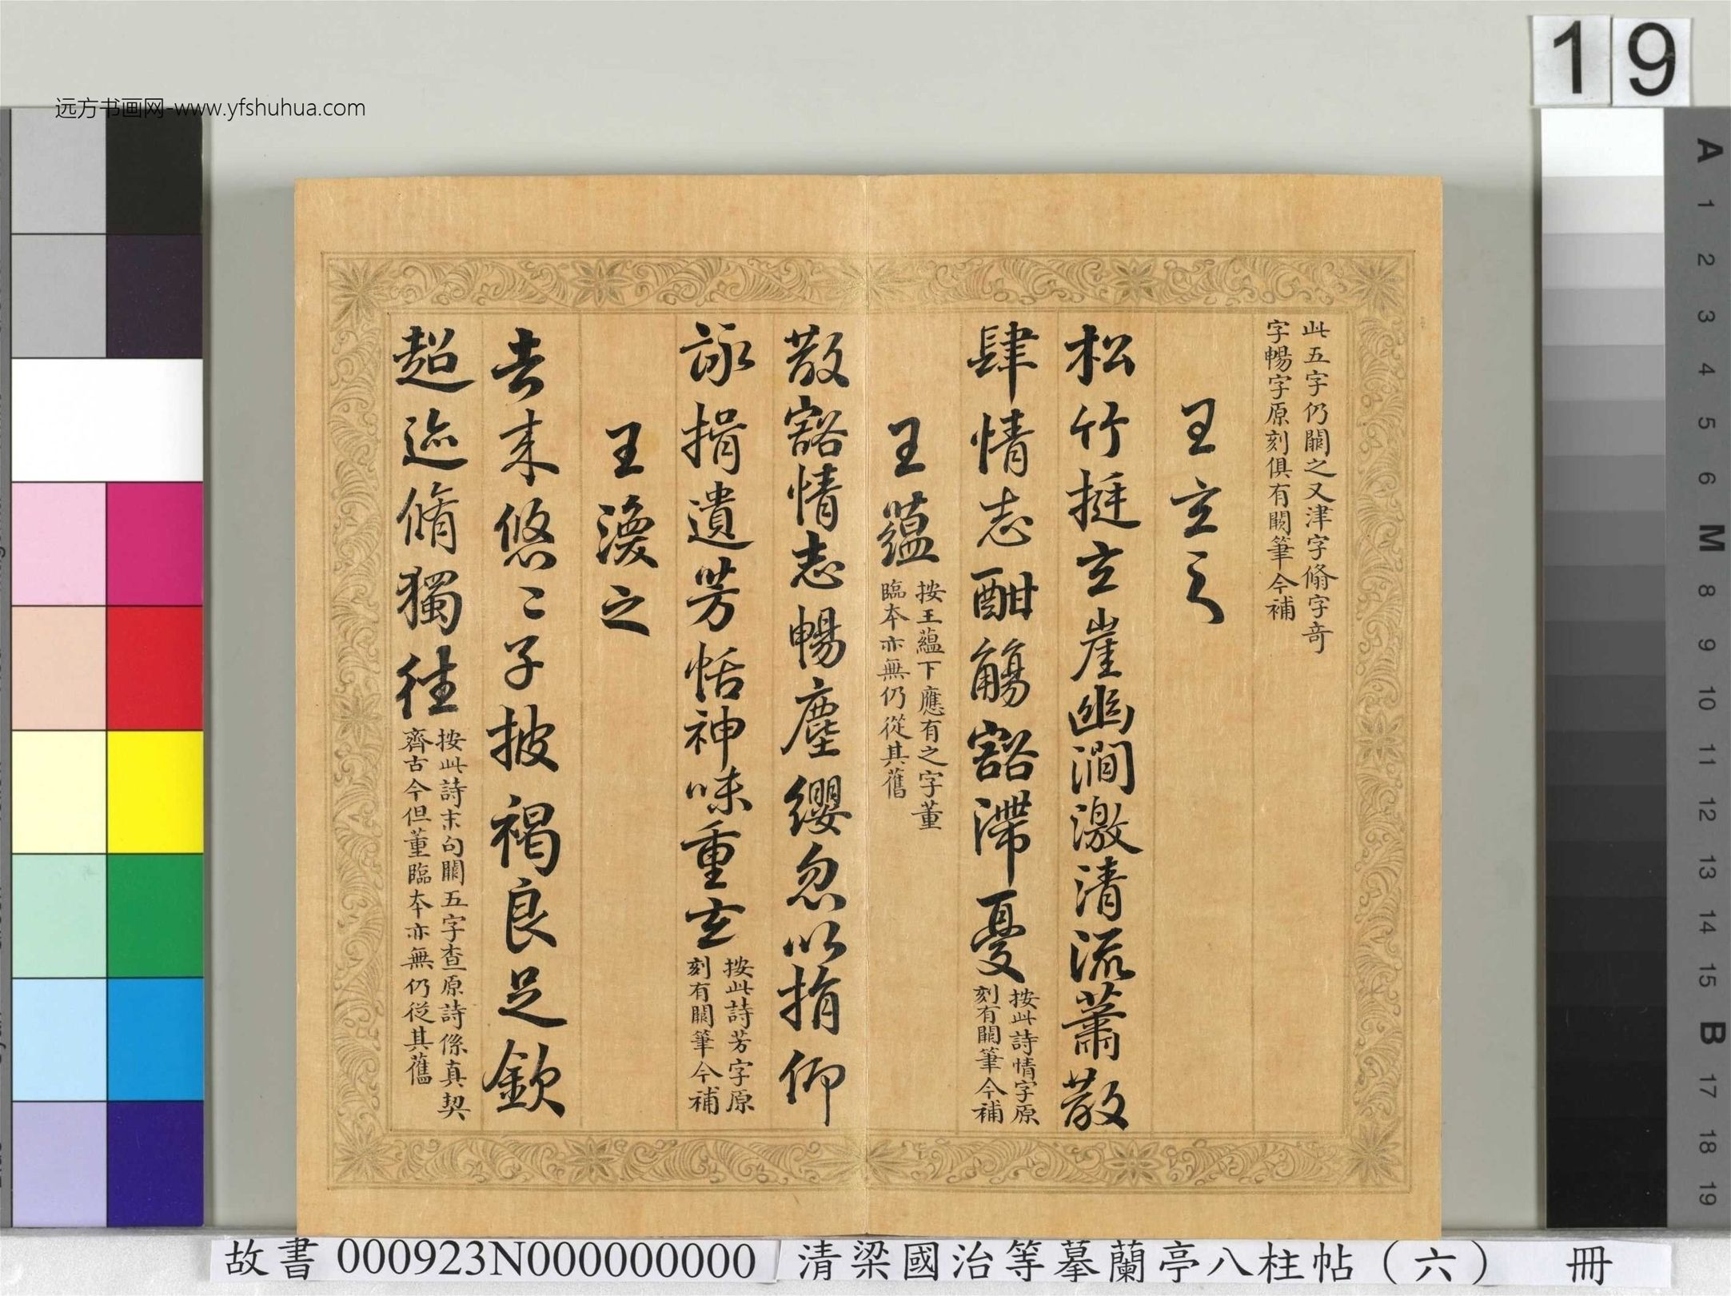 19
远方书画网-www.yfshuhua.com
此五字仍闕之又津字脩字奇
字暢字原刻俱有闕筆今補
王玄之
松竹挺玄崖幽澗激清流蕭散
肆情志酣觴豁滯憂
按此詩情字原
刻有闕筆今補
王蘊
按王蘊下應有之字董
臨本亦無仍從其舊
散豁情志暢塵纓忽以捐仰
詠揖遺芳恬神味重玄
按此詩芳字原
刻有闕筆今補
王渙之
去来悠〻子披褐良足欽
超迹脩獨往
按此詩末句闕五字查原詩係真契
齊古今但董臨本亦無仍從其舊
A
1
2
3
4
5
6
M
8
9
10
11
12
13
14
15
B
17
18
19
故書 000923N000000000 清梁國治等摹蘭亭八柱帖（六） 冊